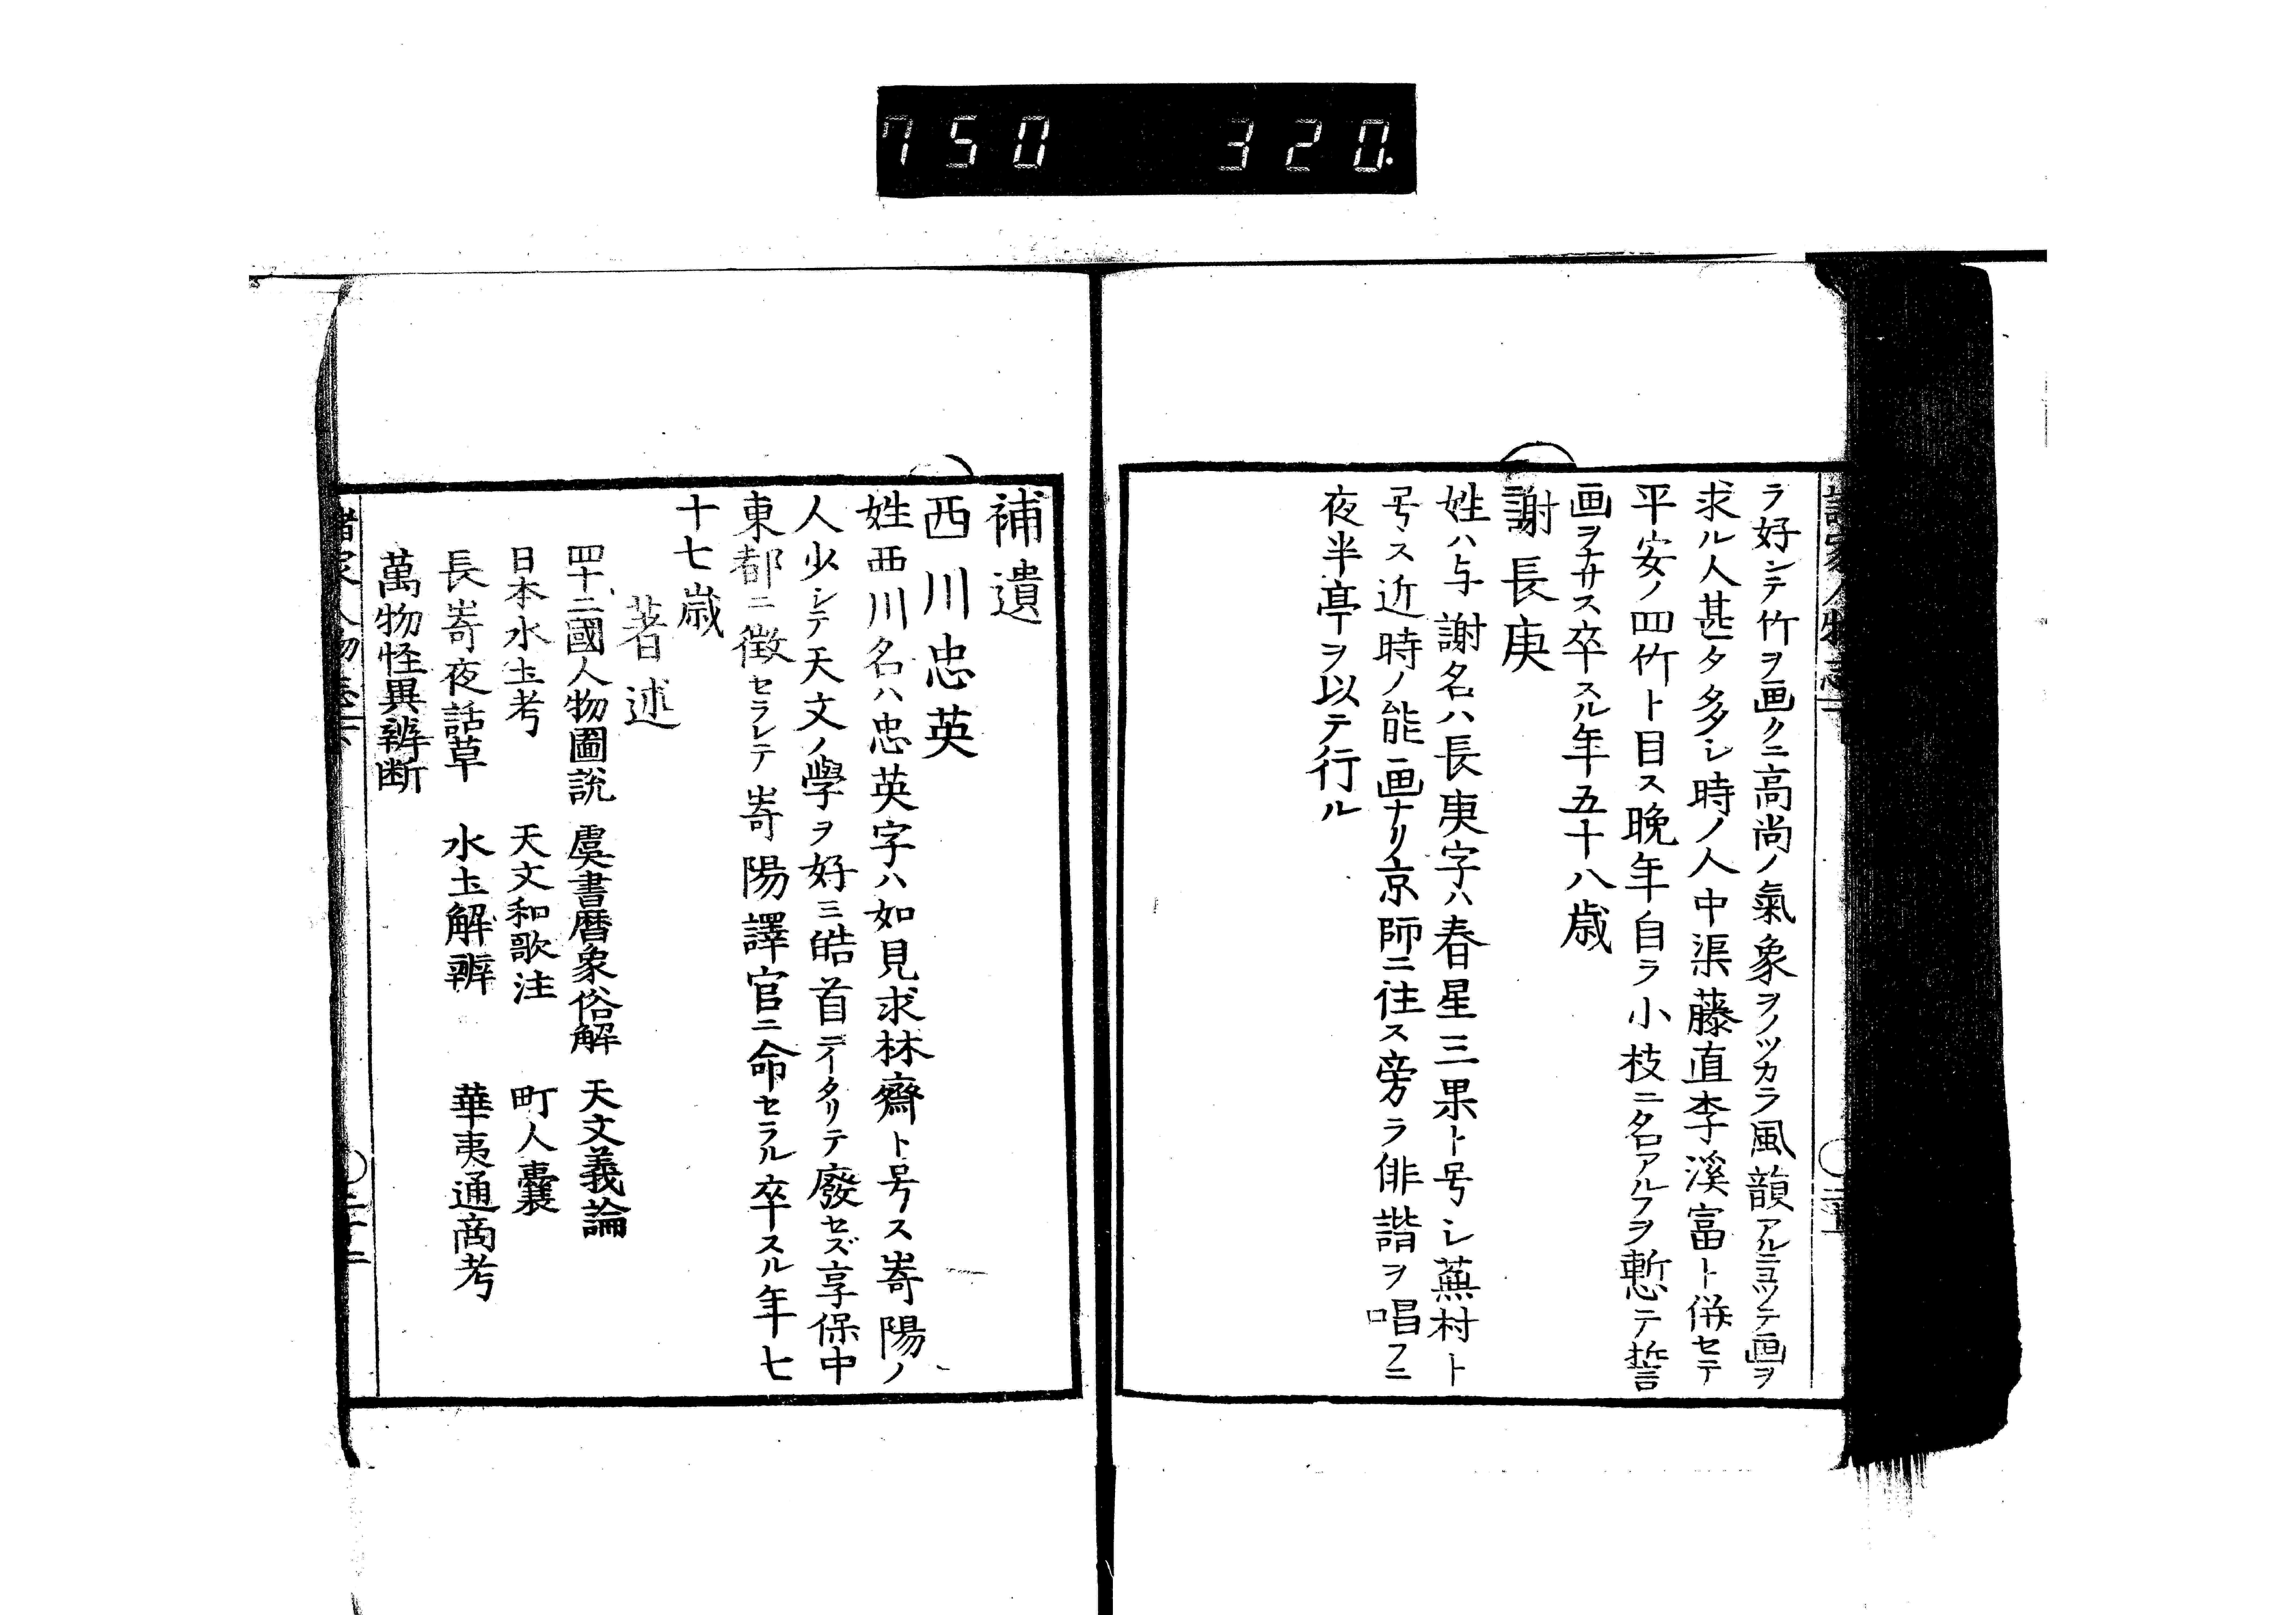 750 320.
ラ好ンテ竹ヲ画クニ高尚ノ氣象ヲノツカラ風韻アルニヨツテ画ヲ
求ル人甚タ多シ時ノ人中渠藤直李溪富ト併セテ
平安ノ四竹ト目ス晩年自ラ小枝ニ名アルヿヲ慙テ誓
画ヲナサス卒スル年五十八歳
謝長庚
姓ハ与謝名ハ長庚字ハ春星三果ト号シ蕪村ト
号ス近時ノ能画ナリ京師ニ住ス旁ラ俳諧ヲ唱フニ
夜半亭ヲ以テ行ル
補遺
西川忠英
姓西川名ハ忠英字ハ如見求林齋ト号ス嵜陽ノ
人少シテ天文ノ學ヲ好ミ皓首ニイタリテ廢セズ享保中
東都ニ徴セラレテ嵜陽譯官ニ命セラル卒スル年七
十七歳
著述
四十二國人物圖説 虞書暦象俗解 天文義論
日本水土考 天文和歌注 町人嚢
長嵜夜話草 水土解辨 華夷通商考
萬物怪異辨断